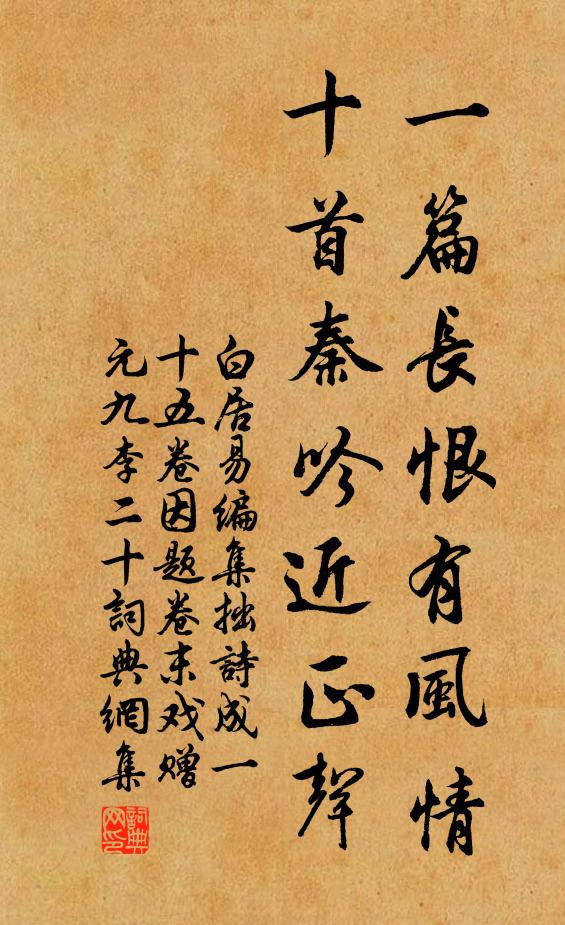 一篇長恨有風情
十首秦吟近正聲
白居易編集拙詩成一
十五卷因題卷末戏赠
元九李二十詞典網集
詞典
网印